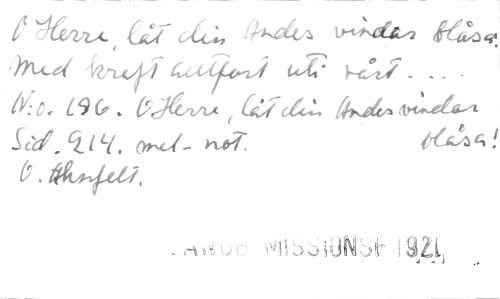 O Herre, låt din Andes vindar blåsa!
Med kraft alltfort uti vårt....
N:o. 196. O Herre, låt din Andes vindar
blåsa!
Sid. 214. mel-not.
O. Ahnfelt.
MISSIONSF 1921